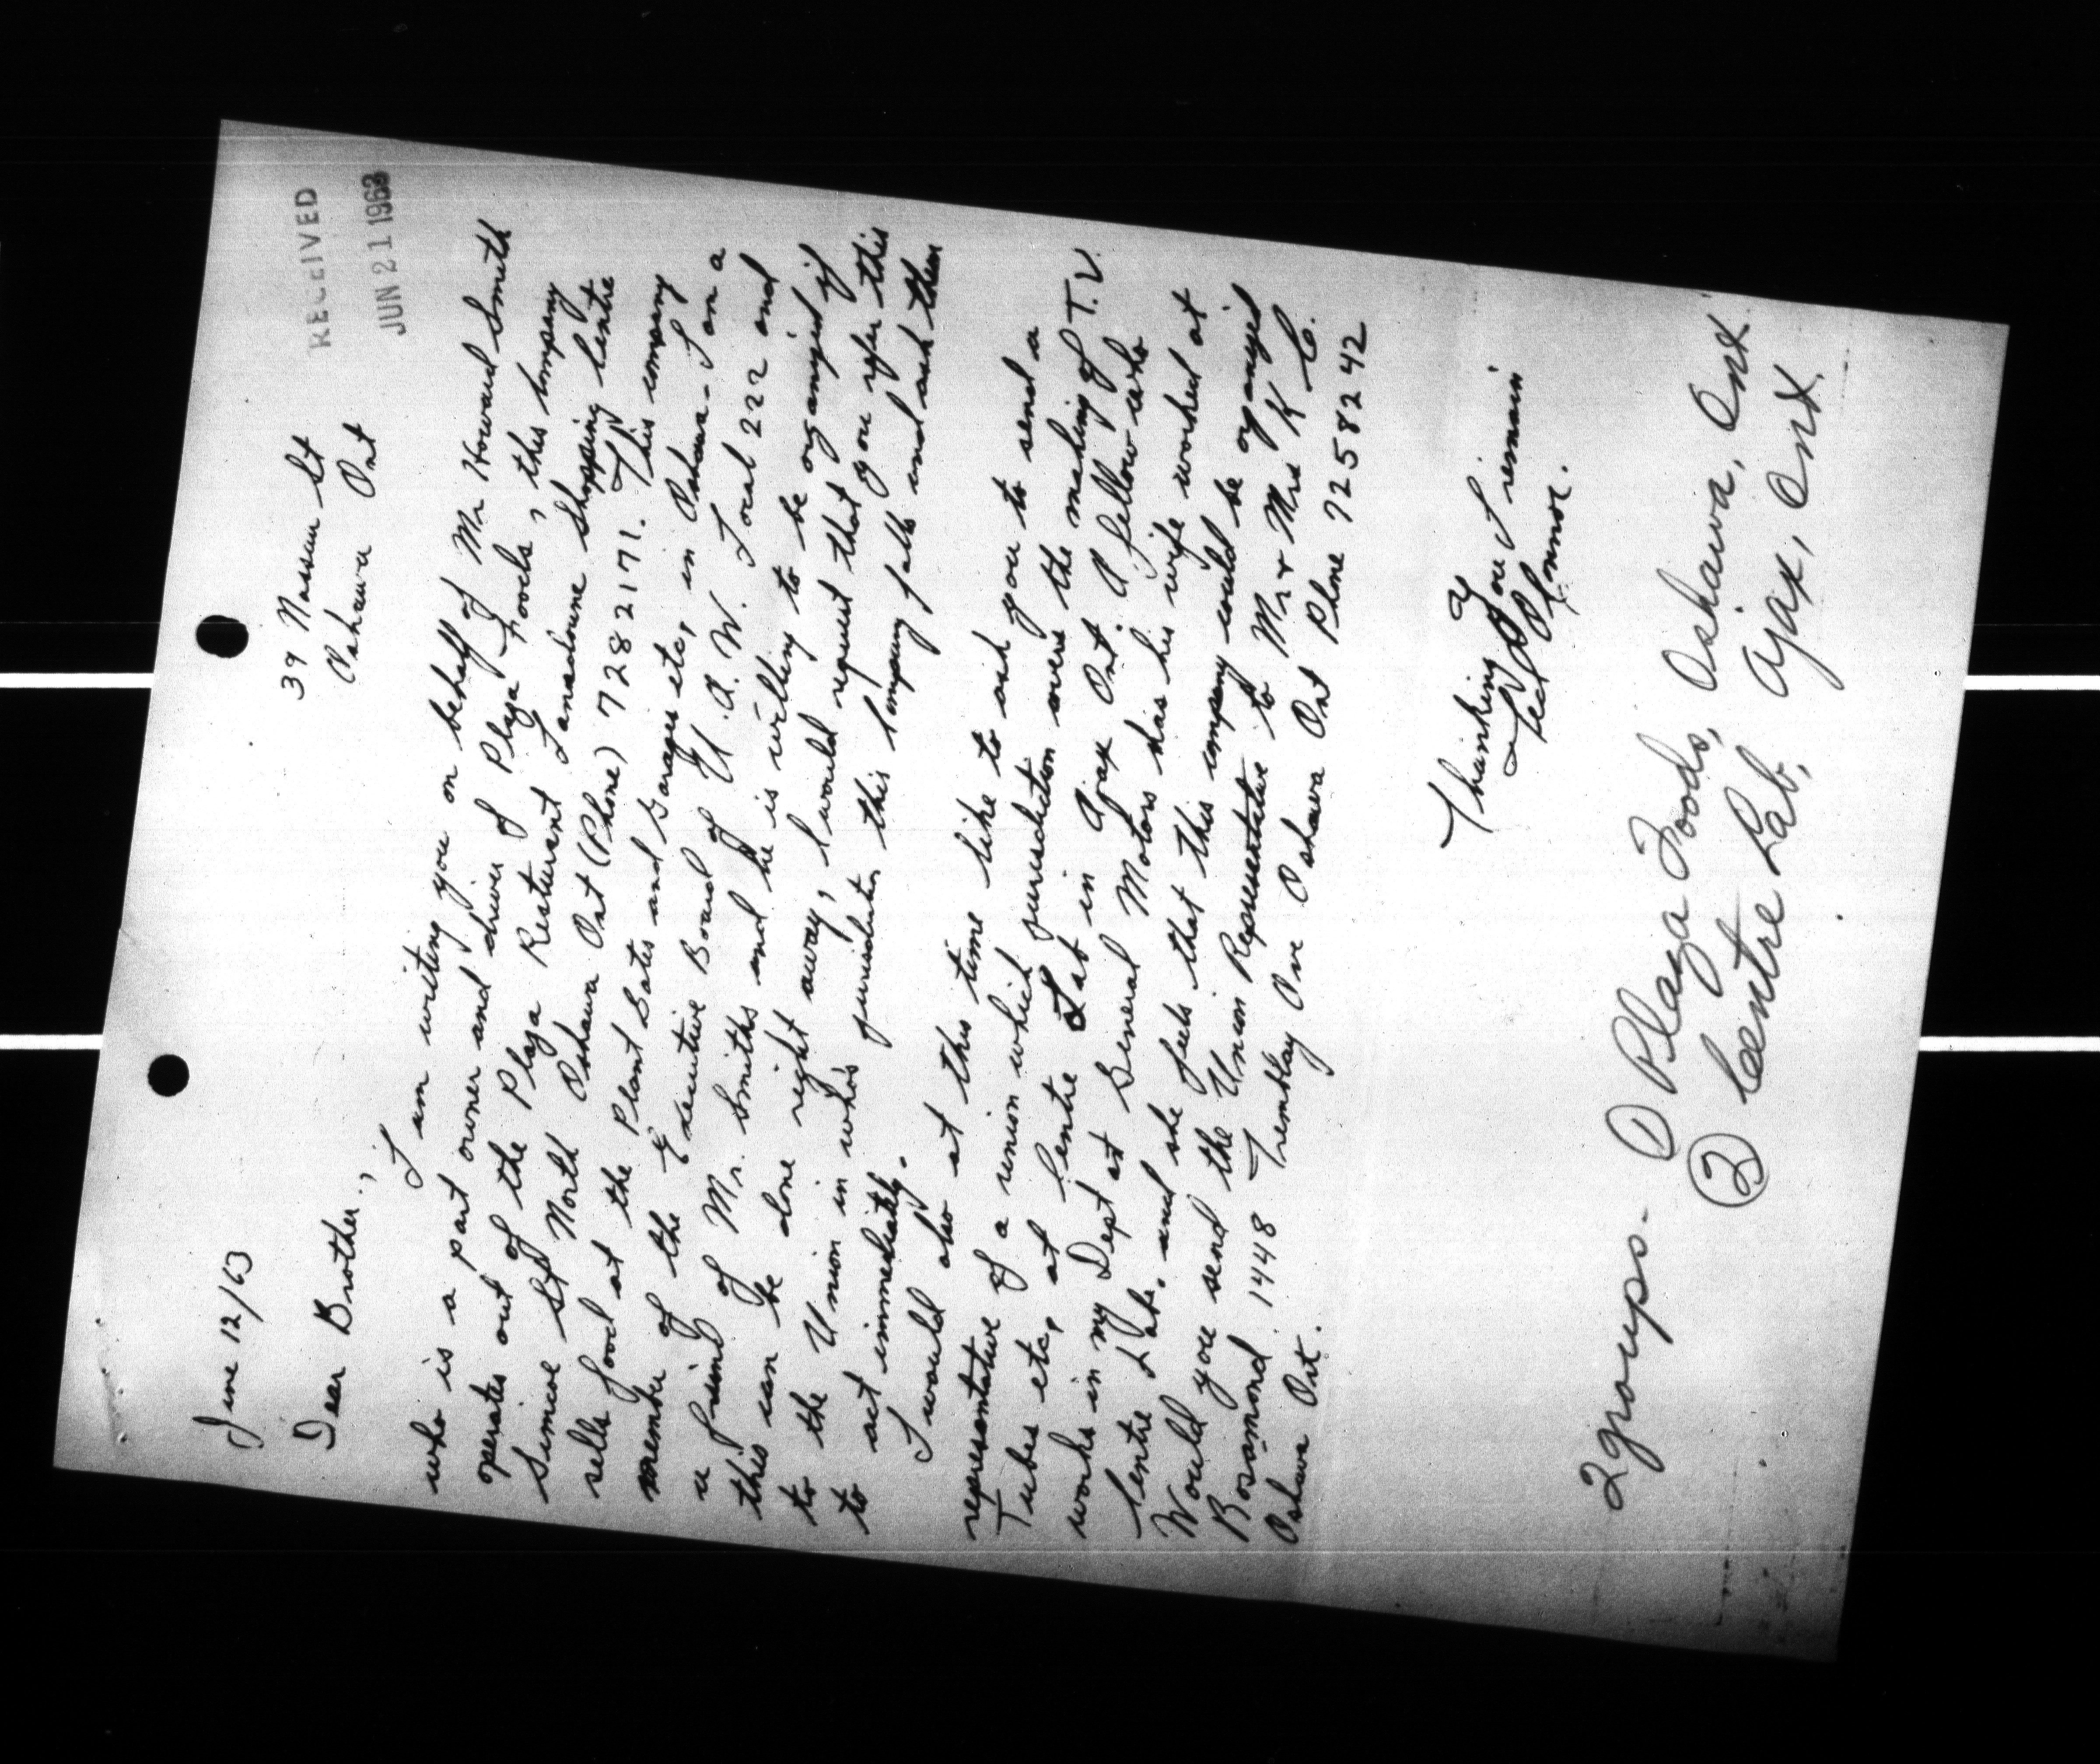 RECEIVED
JUN 21 1963
39 Nassau St
Oshawa Ont
June 12/63
Dear Brother,
I am writing you on behalf of Mr Howard Smith
who is a part owner and driver of Plaza Foods, this Company
operates out of the Plaza Resturant Lansdowne Shopping Centre
Simcoe St North Oshawa Ont (Phone) 7282171. This company
sells food at the Plant Gates and Garages etc, in Oshawa - I am a
member of the Executive Board of U.A.W. Local 222 and
a friend of Mr. Smiths and he is willing to be organized if
this can be done right away, I would request that you refer this
to the Union in who's jurisdiction this Company falls and ask them
to act immediately.
I would also at this time like to ask you to send a
representative of a union which jurisdiction covers the making of T.V.
Tubes etc, at Centre Lab in Ajax Ont. A fellow who
works in my Dept at General Motors has his wife worked at
Centre Lab. and she feels that this company could be organized
Would you send the Union Representative to Mr & Mrs K C.
Rosamond 1448 Tremblay Ave Oshawa Ont Phone 7258242
Oshawa Ont.
Thanking you I remain
Ted
2 groups - ① Plaza Foods, Oshawa, Ont.
② Centre Lab, Ajax, Ont.